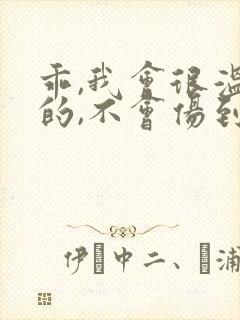 乖,我會很溫
的,不會傷到
伊 中二、 浦